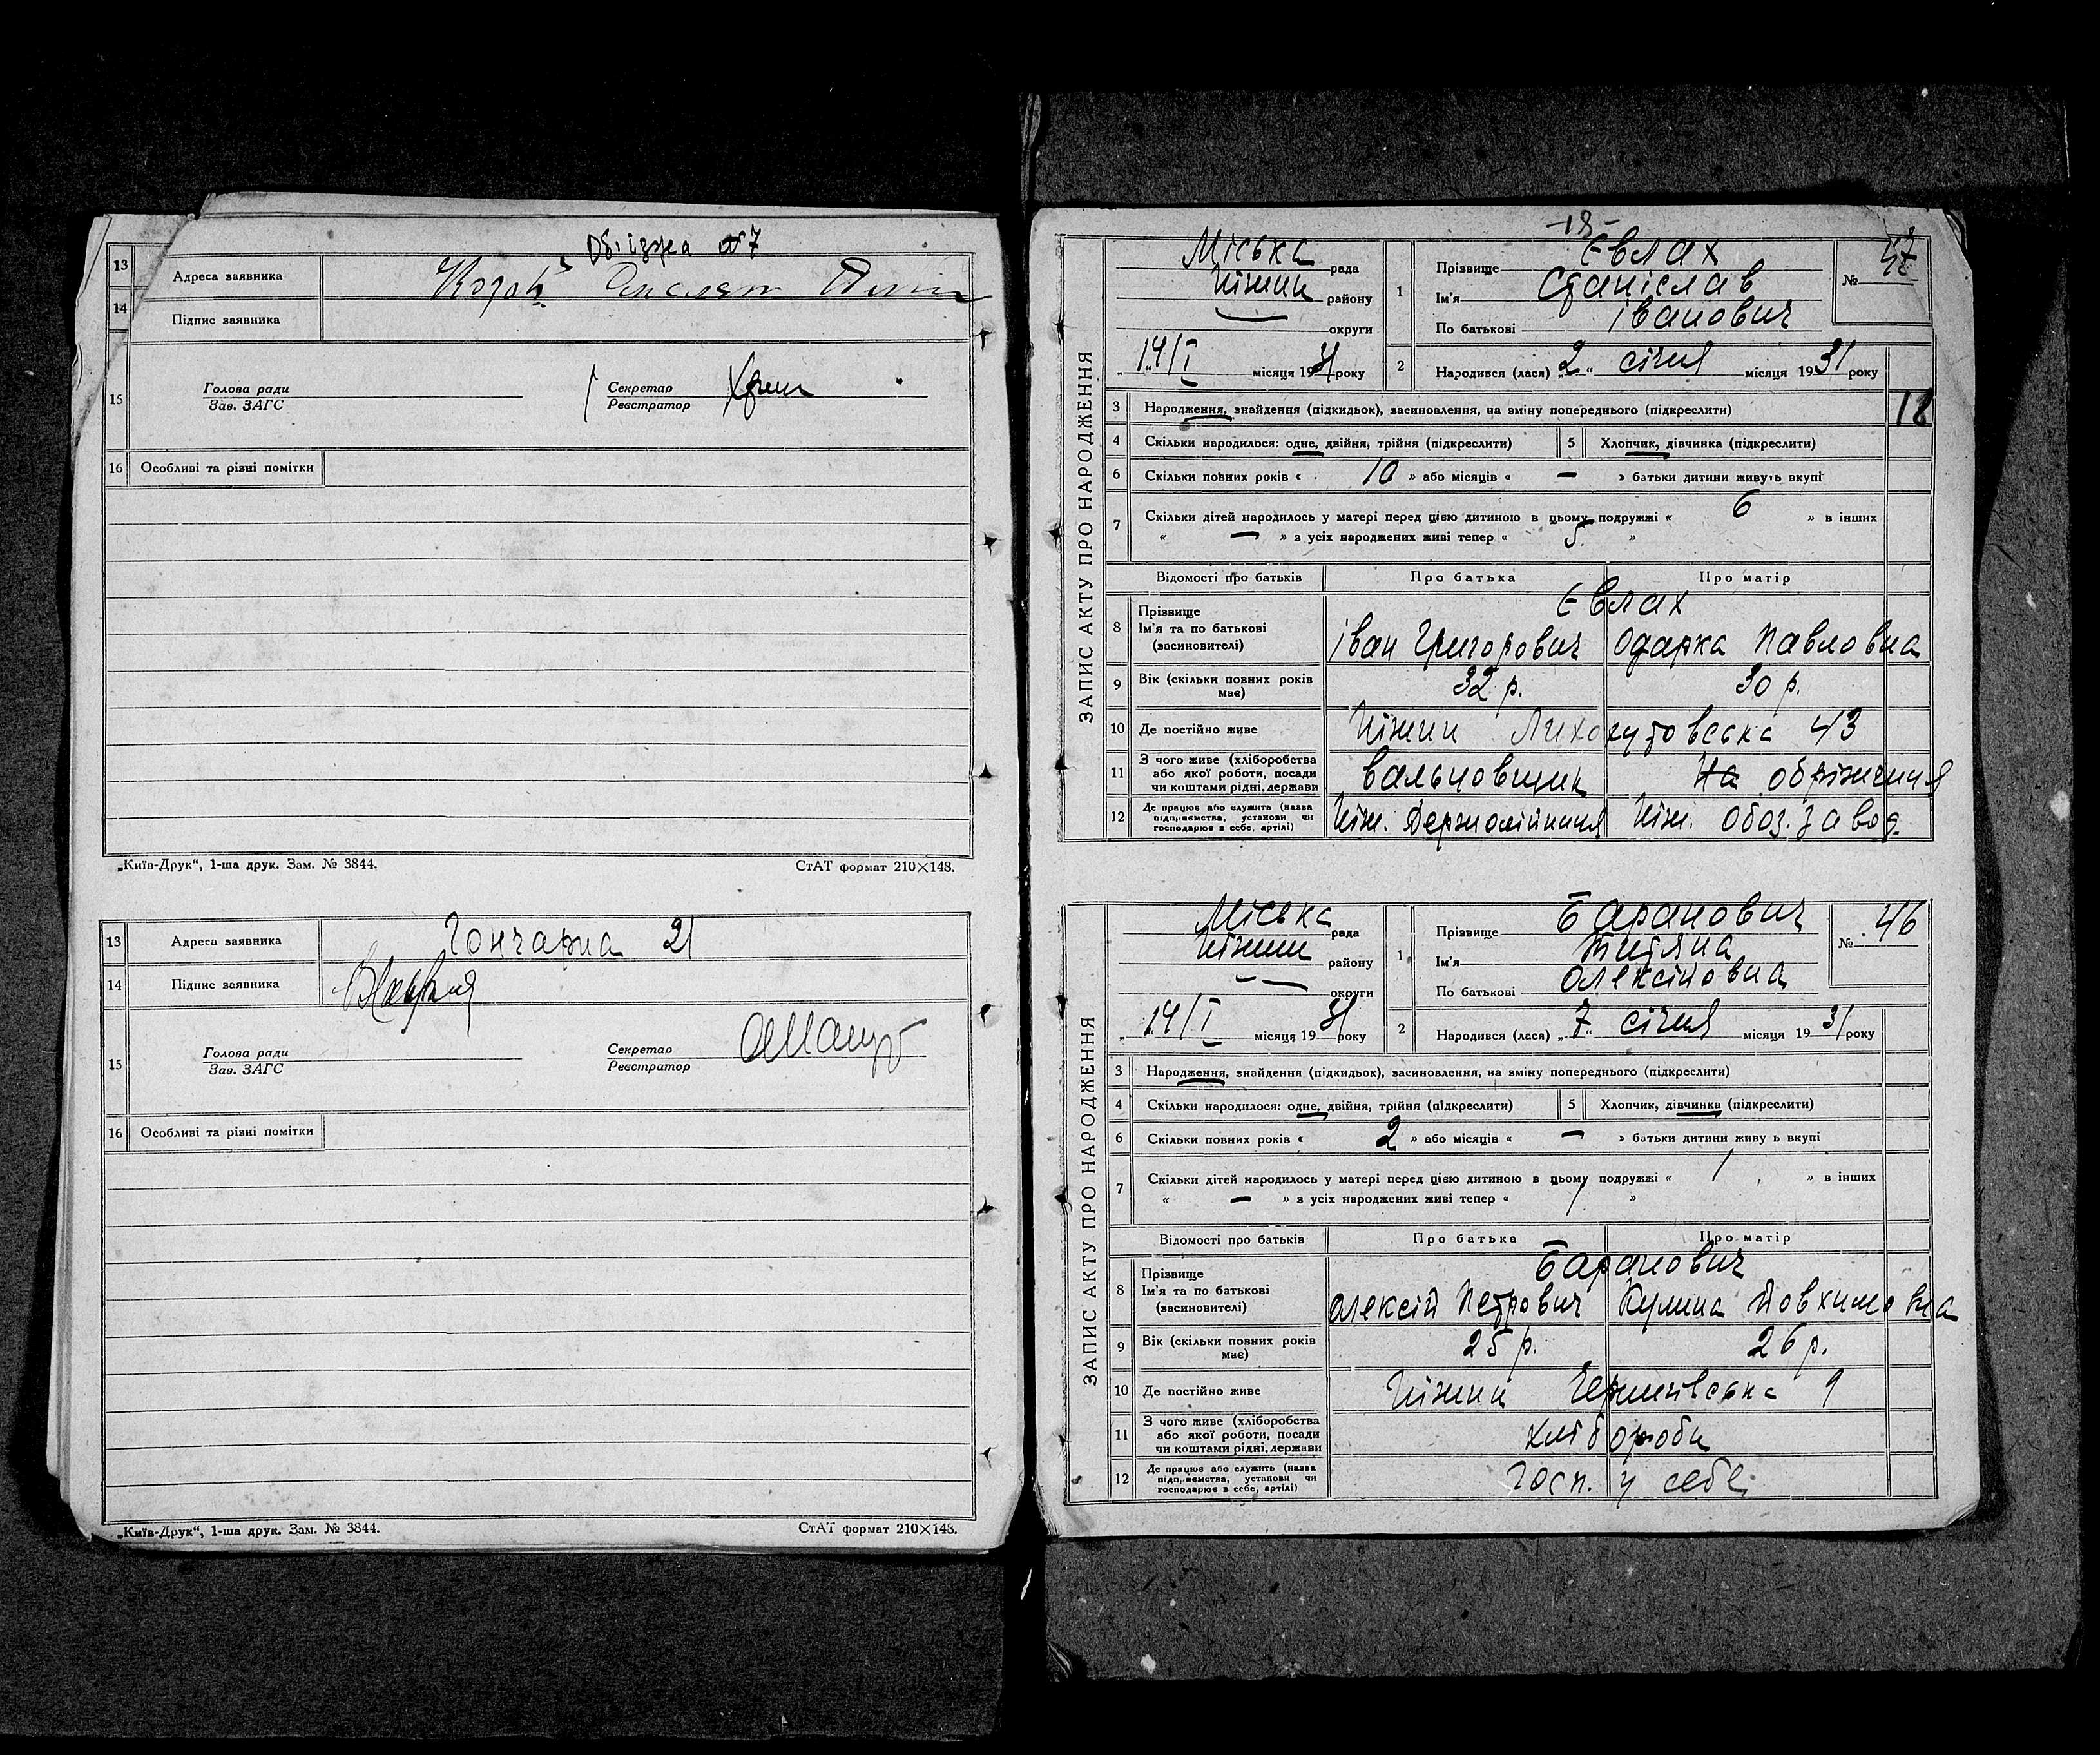 Об'їзжа №7
13 Адреса заявника
14 Підпис заявника
15 Голова ради
Зав. ЗАГС
Секретар
Реєстратор
16 Особливі та різні помітки
„Київ-Друк“, 1-ша друк. Зам. № 3844.
СтАТ формат 210×148.
13 Адреса заявника Гончарна 21
14 Підпис заявника
15 Голова ради
Зав. ЗАГС
Секретар
Реєстратор
16 Особливі та різні помітки
„Київ-Друк“, 1-ша друк. Зам. № 3844.
СтАТ формат 210×148.
-18-
ЗАПИС АКТУ ПРО НАРОДЖЕННЯ
Міська рада
Ніжин району
округи
„14/I місяця 1931 року
1 Прізвище Євлах
Ім'я Станіслав
По батькові Іванович
№ 47
2 Народився (лася) „2“ січня місяця 1931 року
3 Народження, знайдення (підкидьок), засиновлення, на зміну попереднього (підкреслити)
18
4 Скільки народилося: одне, двійня, трійня (підкреслити)
5 Хлопчик, дівчинка (підкреслити)
6 Скільки повних років « 10 » або місяців « — » батьки дитини живуть вкупі
7 Скільки дітей народилось у матері перед цією дитиною в цьому подружжі « 6 » в інших
« — » з усіх народжених живі тепер « 5 »
Відомості про батьків Про батька Про матір
8 Прізвище Євлах
Ім'я та по батькові Іван Григорович Одарка Павловна
(засиновителі)
9 Вік (скільки повних років має) 32 р. 30 р.
10 Де постійно живе Ніжин 43
11 З чого живе (хліборобства
або якої роботи, посади
чи коштами рідні, держави вальцовщик На обрізчиця
12 Де працює або служить (назва
підприємства, установи чи
господарює в себе, артілі) Ніж. Держолійниця Ніж. Обоз. завод.
ЗАПИС АКТУ ПРО НАРОДЖЕННЯ
Міська рада
Ніжин району
округи
„14/I місяця 1931 року
1 Прізвище Баранович
Ім'я Титяна
По батькові Олексіновна
№ 46
2 Народився (лася) „7“ січня місяця 1931 року
3 Народження, знайдення (підкидьок), засиновлення, на зміну попереднього (підкреслити)
4 Скільки народилося: одне, двійня, трійня (підкреслити)
5 Хлопчик, дівчинка (підкреслити)
6 Скільки повних років « 2 » або місяців « — » батьки дитини живу ь вкупі
7 Скільки дітей народилось у матері перед цією дитиною в цьому подружжі « 1 » в інших
« — » з усіх народжених живі тепер « 1 »
Відомості про батьків Про батька Про матір
8 Прізвище Баранович
Ім'я та по батькові Олексій Петрович Кулина Йовхимовна
(засиновителі)
9 Вік (скільки повних років має) 25 р. 26 р.
10 Де постійно живе Ніжин Чернигівська 9
11 З чого живе (хліборобства
або якої роботи, посади
чи коштами рідні, держави хлібороби
12 Де працює або служить (назва
підприємства, установи чи
господарює в себе, артілі) Госп. у себе